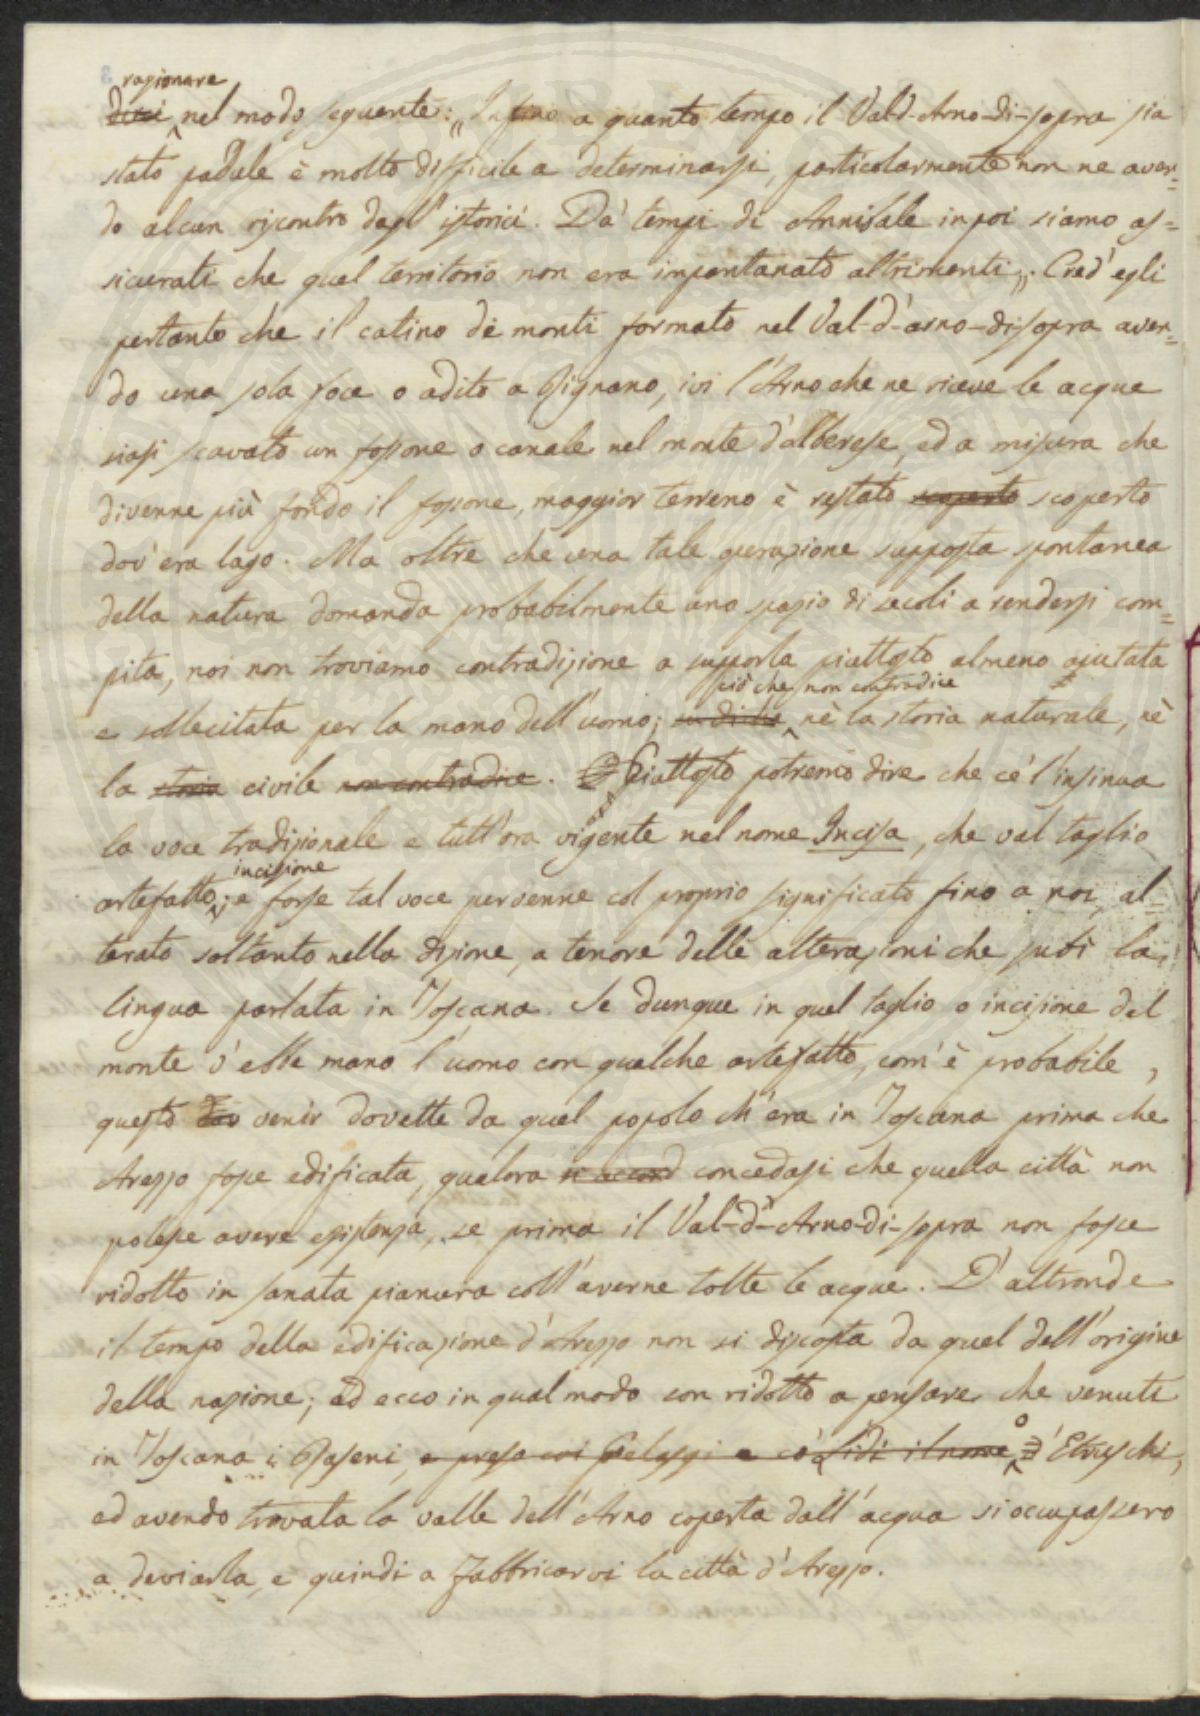 ragionare
dirci nel modo seguente: „Infino a quanto tempo il Val-d-Arno-di-sopra sia
stato padule è molto difficile a determinarsi, particolarmente non ne aven=
do alcun riscontro dagl'istorici. Da' tempi di Annibale in poi siamo as=
sicurati che quel territorio non era impantanato altrimenti„. Cred'egli
pertanto che il catino de monti formato nel Val-d'arno-di-sopra aven=
do una sola foce o adito a Rignano, ivi l'Arno che ne riceve le acque
siasi scavato un fossone o canale nel monte d'alberese, ed a misura che
divenne più fondo il fossone, maggior terreno è restato scoperto scoperto
dov'era lago. Ma oltre che una tale operazione supposta spontanea
della natura domanda probabilmente uno spazio di secoli a rendersi com=
pita, noi non troviamo contradizione a supporla piuttosto almeno ajutata
ciò che non contradice
e sollecitata per la mano dell'uomo; nè la storia naturale, nè
la storia civile non contradice. Piuttosto potremo dire che ce l'insinua
la voce tradizionale e tutt'ora vigente nel nome Incisa, che val taglio
incisione
artefatto; e forse tal voce pervenne col proprio significato fino a noi, al=
terato soltanto nella dizione, a tenore delle alterazioni che subì la
lingua parlata in Toscana. Se dunque in quel taglio o incisione del
monte v'ebbe mano l'uomo con qualche artefatto, com'è probabile,
questo dov venir dovette da quel popolo ch'era in Toscana prima che
Arezzo fosse edificata, qualora si accord concedasi che quella città non
potesse avere esistenza, se prima il Val-d'-Arno-di-sopra non fosse
ridotto in sanata pianura coll'averne tolte le acque. D'altronde
il tempo della edificazione d'Arezzo non si discosta da quel dell'origine
della nazione; ed ecco in qual modo son ridotto a pensare che venuti
in Toscana i Raseni, e presa coi Pelasgi e co' Lidi il nome o d'Etruschi,
ed avendo trovata la valle dell'Arno coperta dall'acqua si occupassero
a deviarla, e quindi a fabbricarvi la città d'Arezzo.